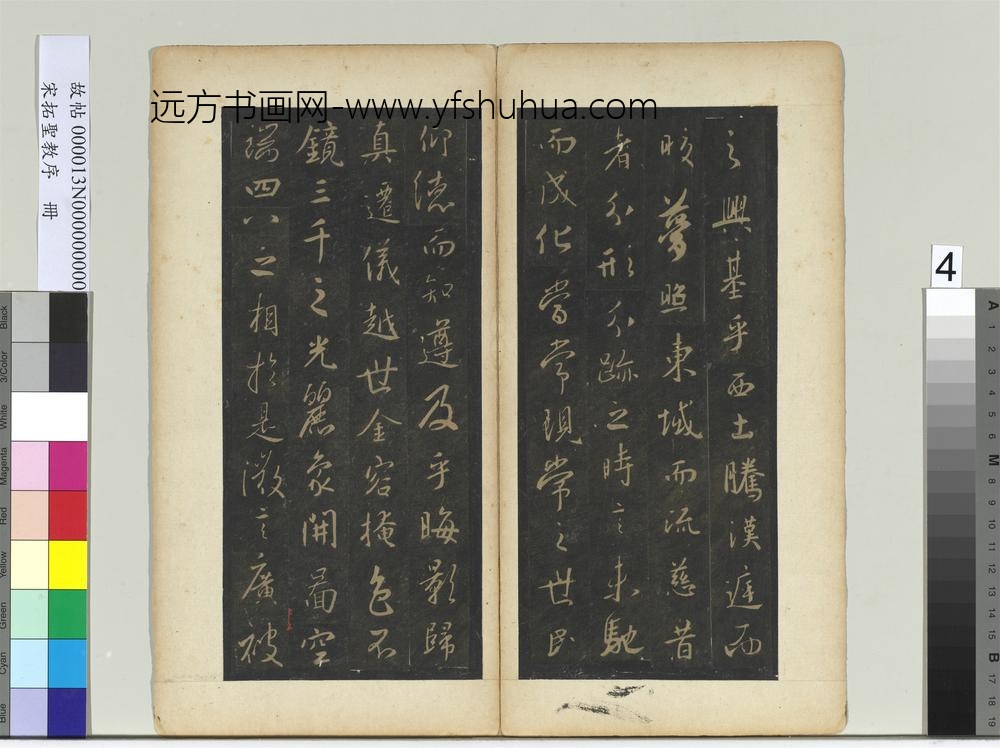 远方书画网-www.yfshuhua.com
故帖 000013N000000000
宋拓聖教序 冊
4
之興基乎西土騰漢庭而
皎夢照東域而流慈昔
者分形分跡之時言未馳
而成化當常現常之世民
仰德而知遵及乎晦影歸
真遷儀越世金容掩色不
鏡三千之光麗象開圖空
端四八之相於是微言廣被
Black
3/Color
White
Magenta
Red
Yellow
Green
Cyan
Blue
A
1
2
3
4
5
6
M
8
9
10
11
12
13
14
15
B
17
18
19